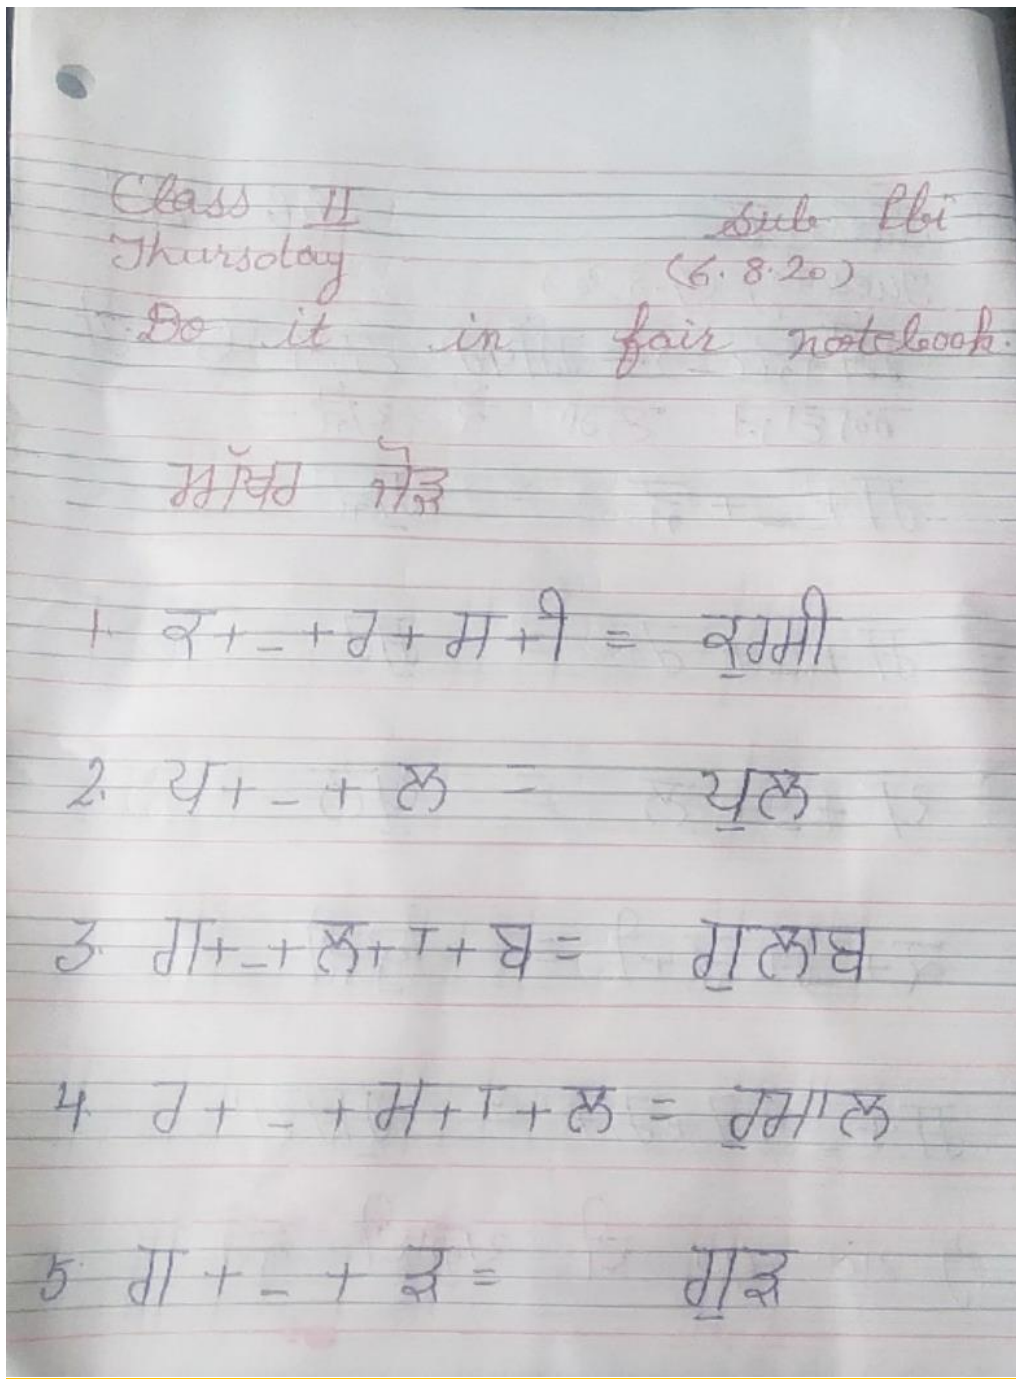 Class II Sub Pbi
Thursday (6.8.20)
Do it in fair notebook.
ਅੱਖਰ ਜੋੜ
1. ਕ + ੁ + ਰ + ਸ + ੀ = ਕੁਰਸੀ
2. ਪ + ੁ + ਲ = ਪੁਲ
3. ਗ + ੁ + ਲ + ਾ + ਬ = ਗੁਲਾਬ
4. ਰ + ੁ + ਮ + ਾ + ਲ = ਰੁਮਾਲ
5. ਗ + ੁ + ੜ = ਗੁੜ